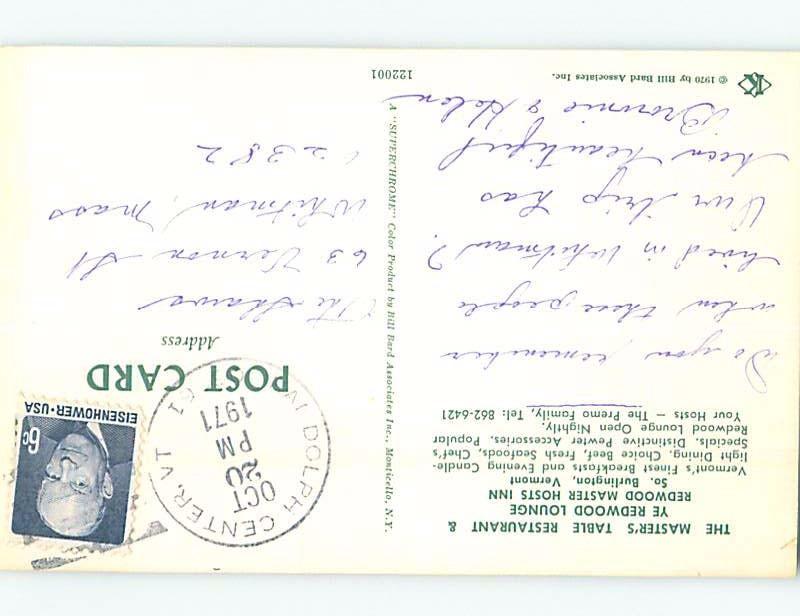 THE MASTER'S TABLE RESTAURANT &
YE REDWOOD LOUNGE
REDWOOD MASTER HOSTS INN
So. Burlington, Vermont
Vermont's Finest Breakfasts and Evening Candle-
light Dining. Choice Beef, Fresh Seafoods, Chef's
Specials. Distinctive Pewter Accessories. Popular
Redwood Lounge Open Nightly.
Your Hosts — The Premo Family, Tel: 862-6421
Do you remember
when these people
lived in Whitman?
Our trip has
been beautiful
Brownie & Helen
© 1970 by Bill Bard Associates Inc.
K
A "SUPERCHROME" Color Product by Bill Bard Associates Inc., Monticello, N.Y.
122001
EISENHOWER·USA
6c
DOLPH CENTER, VT
OCT
20
PM
1971
POST CARD
Address
The Shaws
63 Vernon St
Whitman, Mass
02382